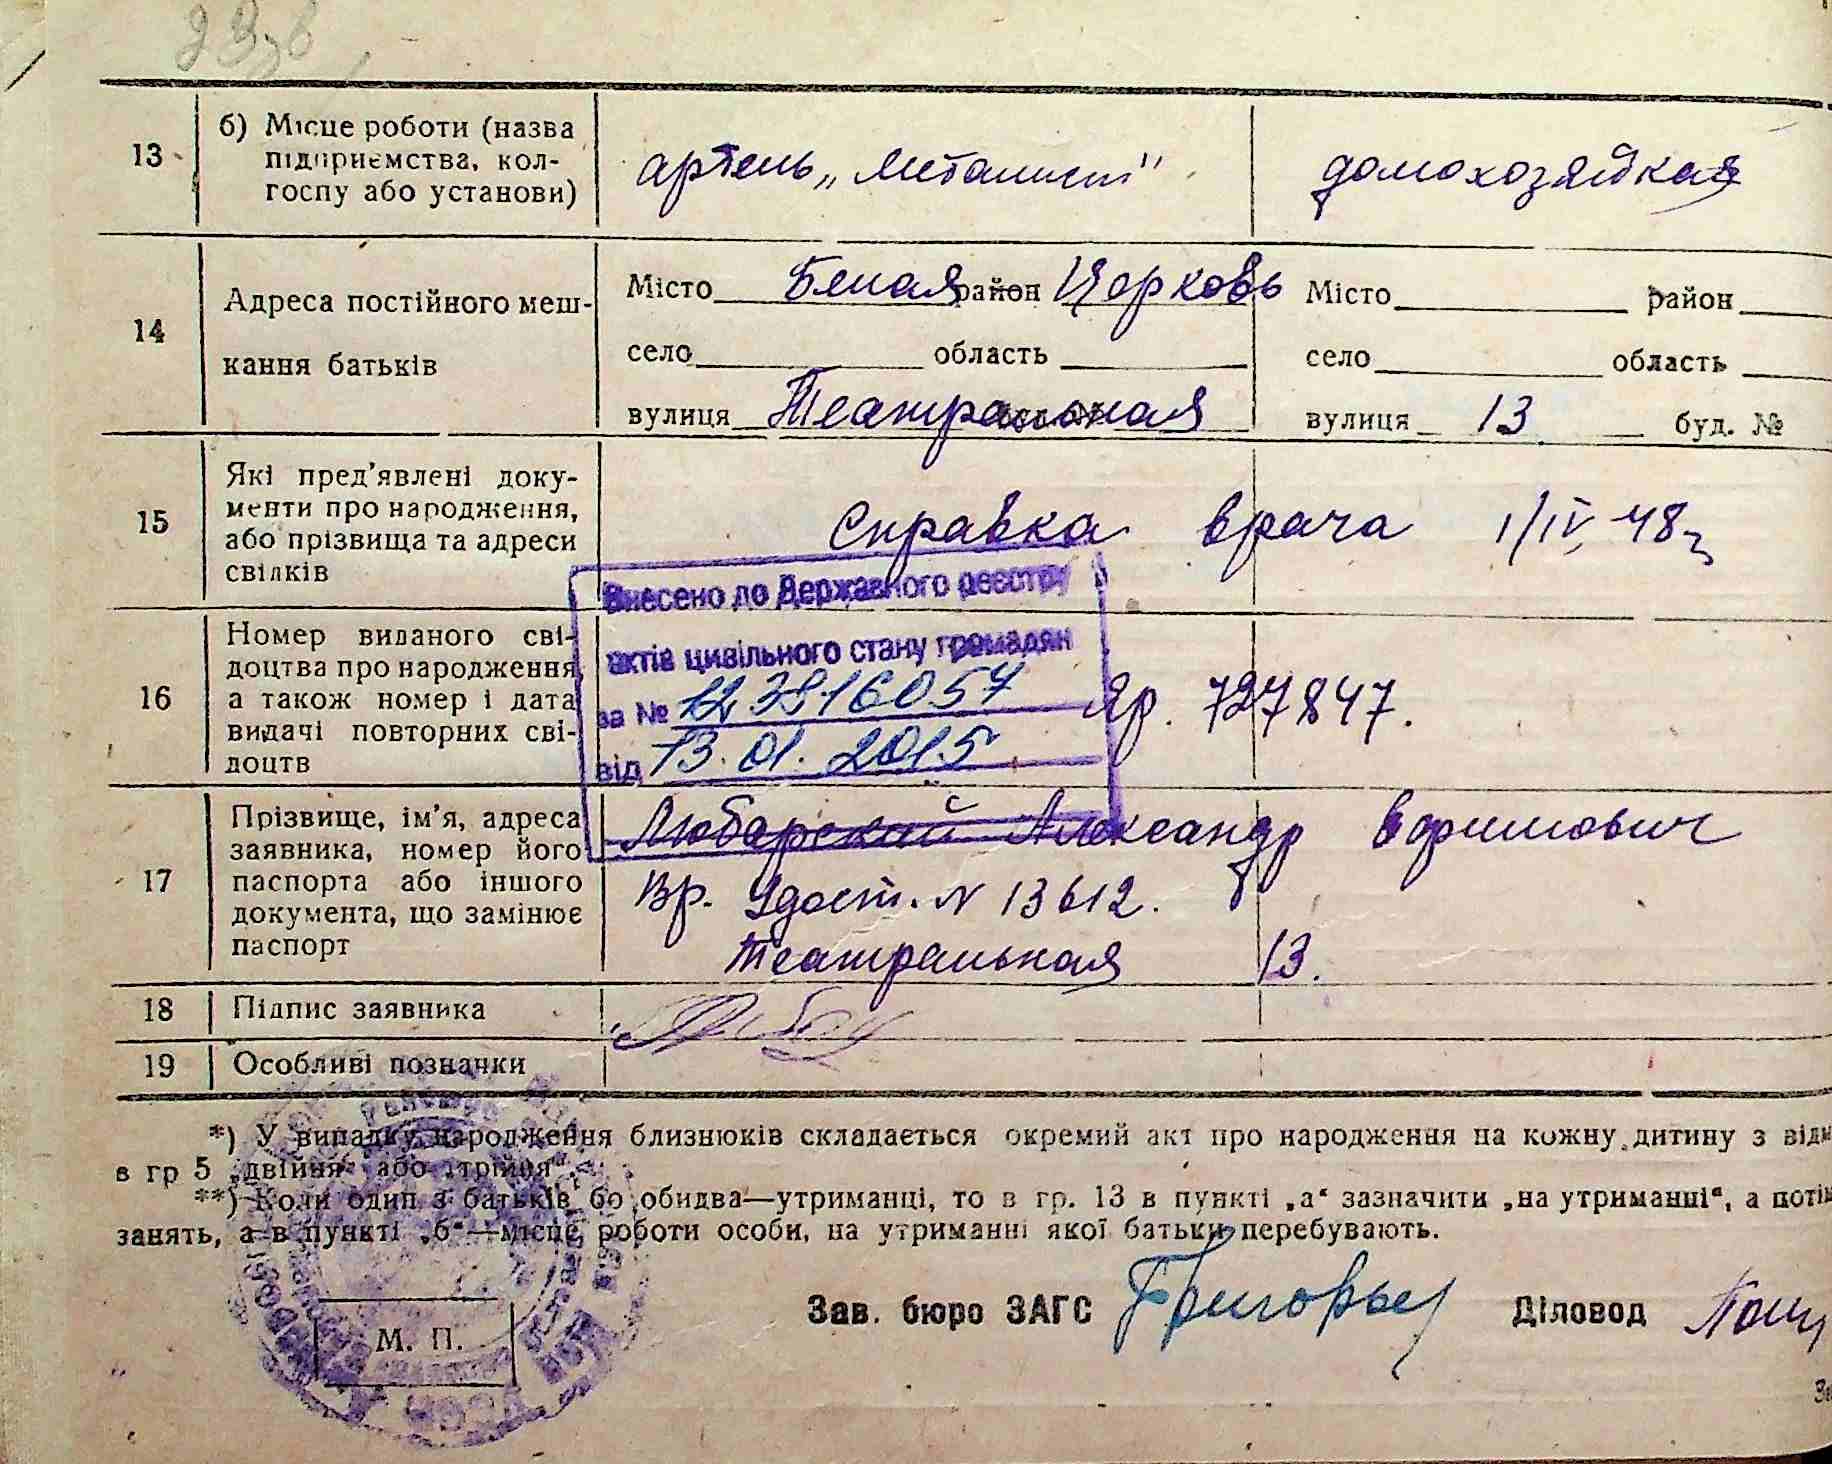 13 б) Місце роботи (назва
підприємства, кол-
госпу або установи)
артель „Металист" домохозяйкая
14 Адреса постійного меш-
кання батьків
Місто Белая район Церковь Місто район
село область село область
вулиця Театральная вулиця 13 буд. №
15 Які пред'явлені доку-
менти про народження,
або прізвища та адреси
свілків
Справка врача 1/IV 48г
Внесено до Державного реєстру
актів цивільного стану громадян
за № 123816057
від 13.01.2015
16 Номер виданого сві-
доцтва про народження
а також номер і дата
видачі повторних сві-
доцтв
Яр. 727847.
17 Прізвище, ім'я, адреса
заявника, номер його
паспорта або іншого
документа, що замінює
паспорт
Любарский Александр
Вр. Удост. N 13612.
Театральная 13.
18 Підпис заявника
19 Особливі позначки
*) У випадку народження близнюків складається окремий акт про народження на кожну дитину з відм
в гр 5 „двійня" або „трійця".
**) Коли один з батьків бо обидва—утриманці, то в гр. 13 в пункті „а" зазначити „на утриманні", а потім
занять, а в пункті „б"—місце роботи особи, на утриманні якої батьки перебувають.
Зав. бюро ЗАГС Григорьев Діловод
М. П.